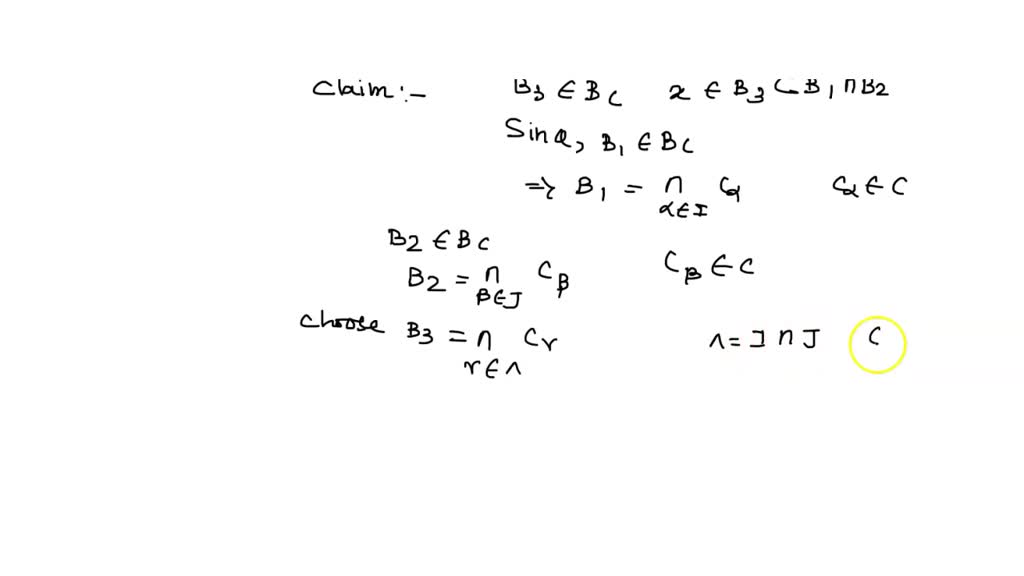 Claim:- B3 ∈ Bc x ∈ B3 ⊂ B1 ∩ B2
Since, B1 ∈ Bc
=> B1 = ∩ Cα Cα ∈ C
α∈I
B2 ∈ Bc
B2 = ∩ Cβ Cβ ∈ C
β∈J
choose B3 = ∩ Cr Λ = I ∩ J C
r ∈ Λ